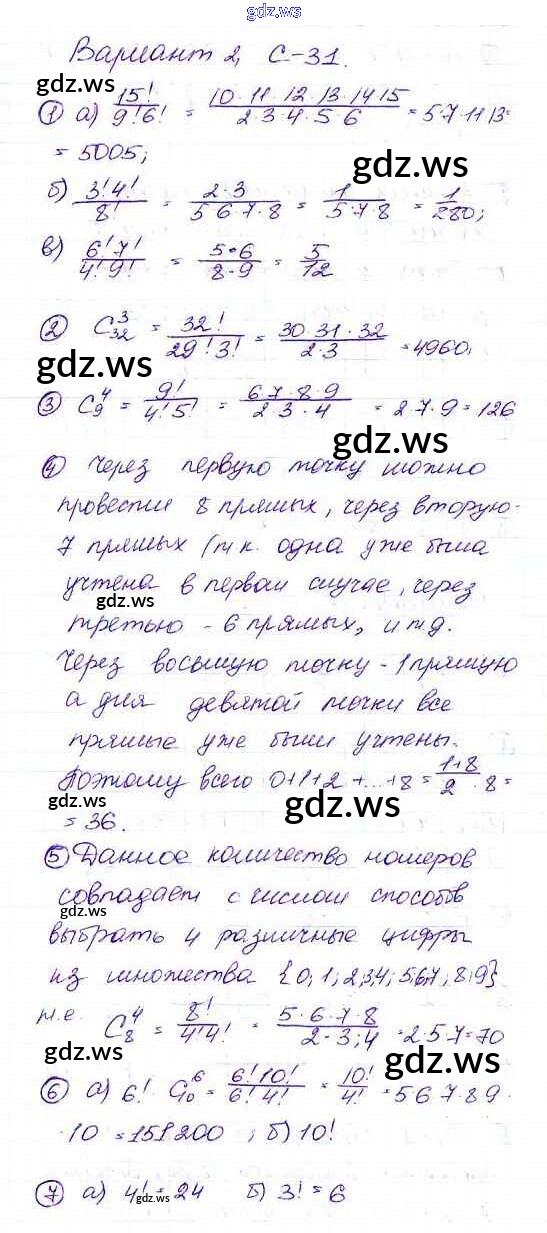 gdz.ws
Вариант 2, С-31.
gdz.ws
① а) 15!/9!6! = 10·11·12·13·14·15/2·3·4·5·6 = 5·7·11·13=
= 5005;
gdz.ws
б) 3!4!/8! = 2·3/5·6·7·8 = 1/5·7·8 = 1/280;
в) 6!7!/4!9! = 5·6/8·9 = 5/12
② C₃₂³ = 32!/29!3! = 30·31·32/2·3 = 4960.
gdz.ws
③ C₉⁴ = 9!/4!5! = 6·7·8·9/2·3·4 = 2·7·9 = 126
gdz.ws
④ Через первую точку можно
провести 8 прямых, через вторую -
7 прямых (т.к. одна уже была
учтена в первом случае, через
gdz.ws
третью - 6 прямых, и т.д.
Через восьмую точку - 1 прямую
а для девятой точки все
прямые уже были учтены.
Поэтому всего 0+1+2+...+8 = 1+8/2 · 8 =
= 36.
gdz.ws
⑤ Данное количество номеров
совпадает с числом способов
gdz.ws
выбрать 4 различные цифры
из множества {0,1,2,3,4,5,6,7,8,9}
т.е. C₈⁴ = 8!/4!4! = 5·6·7·8/2·3·4 = 2·5·7=70
gdz.ws
gdz.ws
⑥ а) 6! · C₁₀⁶ = 6!10!/6!4! = 10!/4! = 5·6·7·8·9·
·10 = 151200; б) 10!
⑦ а) 4! = 24 б) 3! = 6
gdz.ws